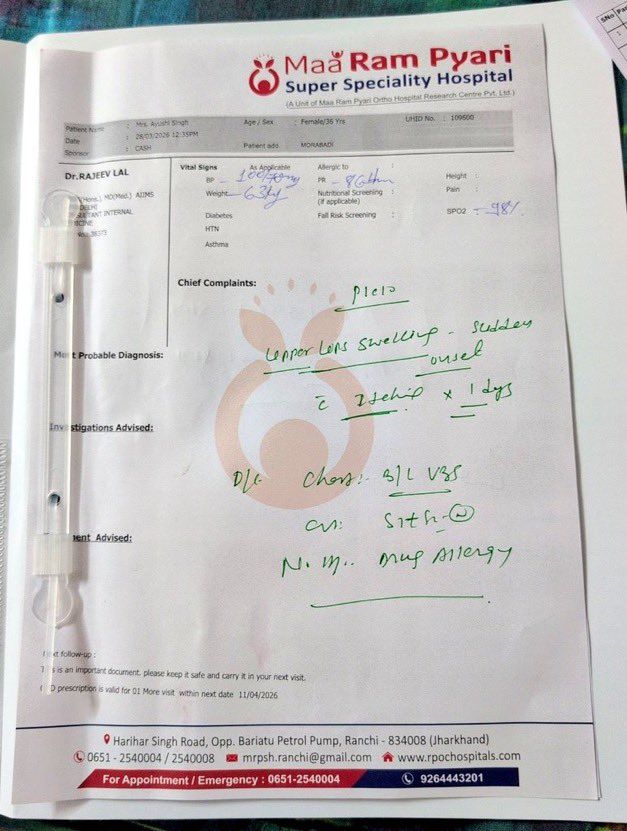 SNo Par
Maa Ram Pyari
Super Speciality Hospital
(A Unit of Maa Ram Pyari Ortho Hospital Research Centre Pvt. Ltd.)
Patient Name : Mrs. Ayushi Singh Age / Sex : Female/36 Yrs UHID No. : 109500
Date : 28/03/2026 12:35PM
Sponsor : CASH Patient add. MORABADI
Dr.RAJEEV LAL
(Hons.), MD(Med.) AIIMS
DELHI
SULTANT INTERNAL
ICINE
No.: 38373
Vital Signs As Applicable Allergic to :
BP - PR - Height :
Weight - 63kg Nutritional Screening : Pain :
(if applicable)
Diabetes Fall Risk Screening : SPO2 :- 98%
HTN
Asthma
Chief Complaints:
P/C/O
Upper Lips Swelling - Sudden
onset
Most Probable Diagnosis:
x 1 dys
Investigations Advised:
Chest: B/L VBS
ment Advised:
Drug Allergy
Next follow-up :
This is an important document, please keep it safe and carry it in your next visit.
prescription is valid for 01 More visit within next date 11/04/2026
Harihar Singh Road, Opp. Bariatu Petrol Pump, Ranchi - 834008 (Jharkhand)
0651 - 2540004 / 2540008 mrpsh.ranchi@gmail.com www.rpochospitals.com
For Appointment / Emergency : 0651-2540004 9264443201